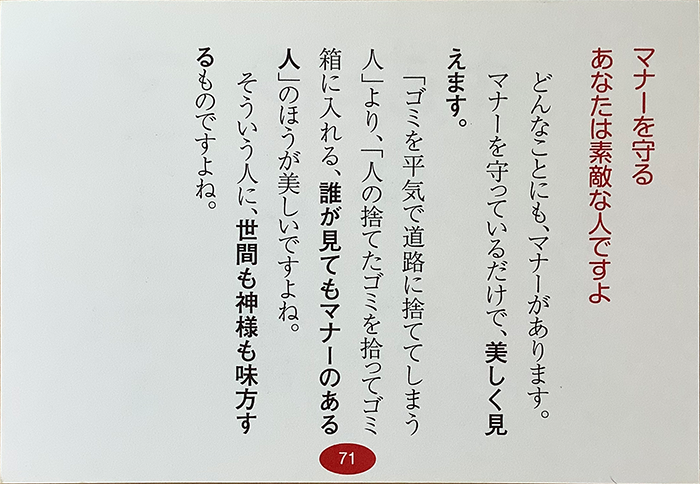 マナーを守る
あなたは素敵な人ですよ
どんなことにも、マナーがあります。
マナーを守っているだけで、美しく見
えます。
「ゴミを平気で道路に捨ててしまう
人」より、「人の捨てたゴミを拾ってゴミ
箱に入れる、誰が見てもマナーのある
人」のほうが美しいですよね。
そういう人に、世間も神様も味方す
るものですよね。
71